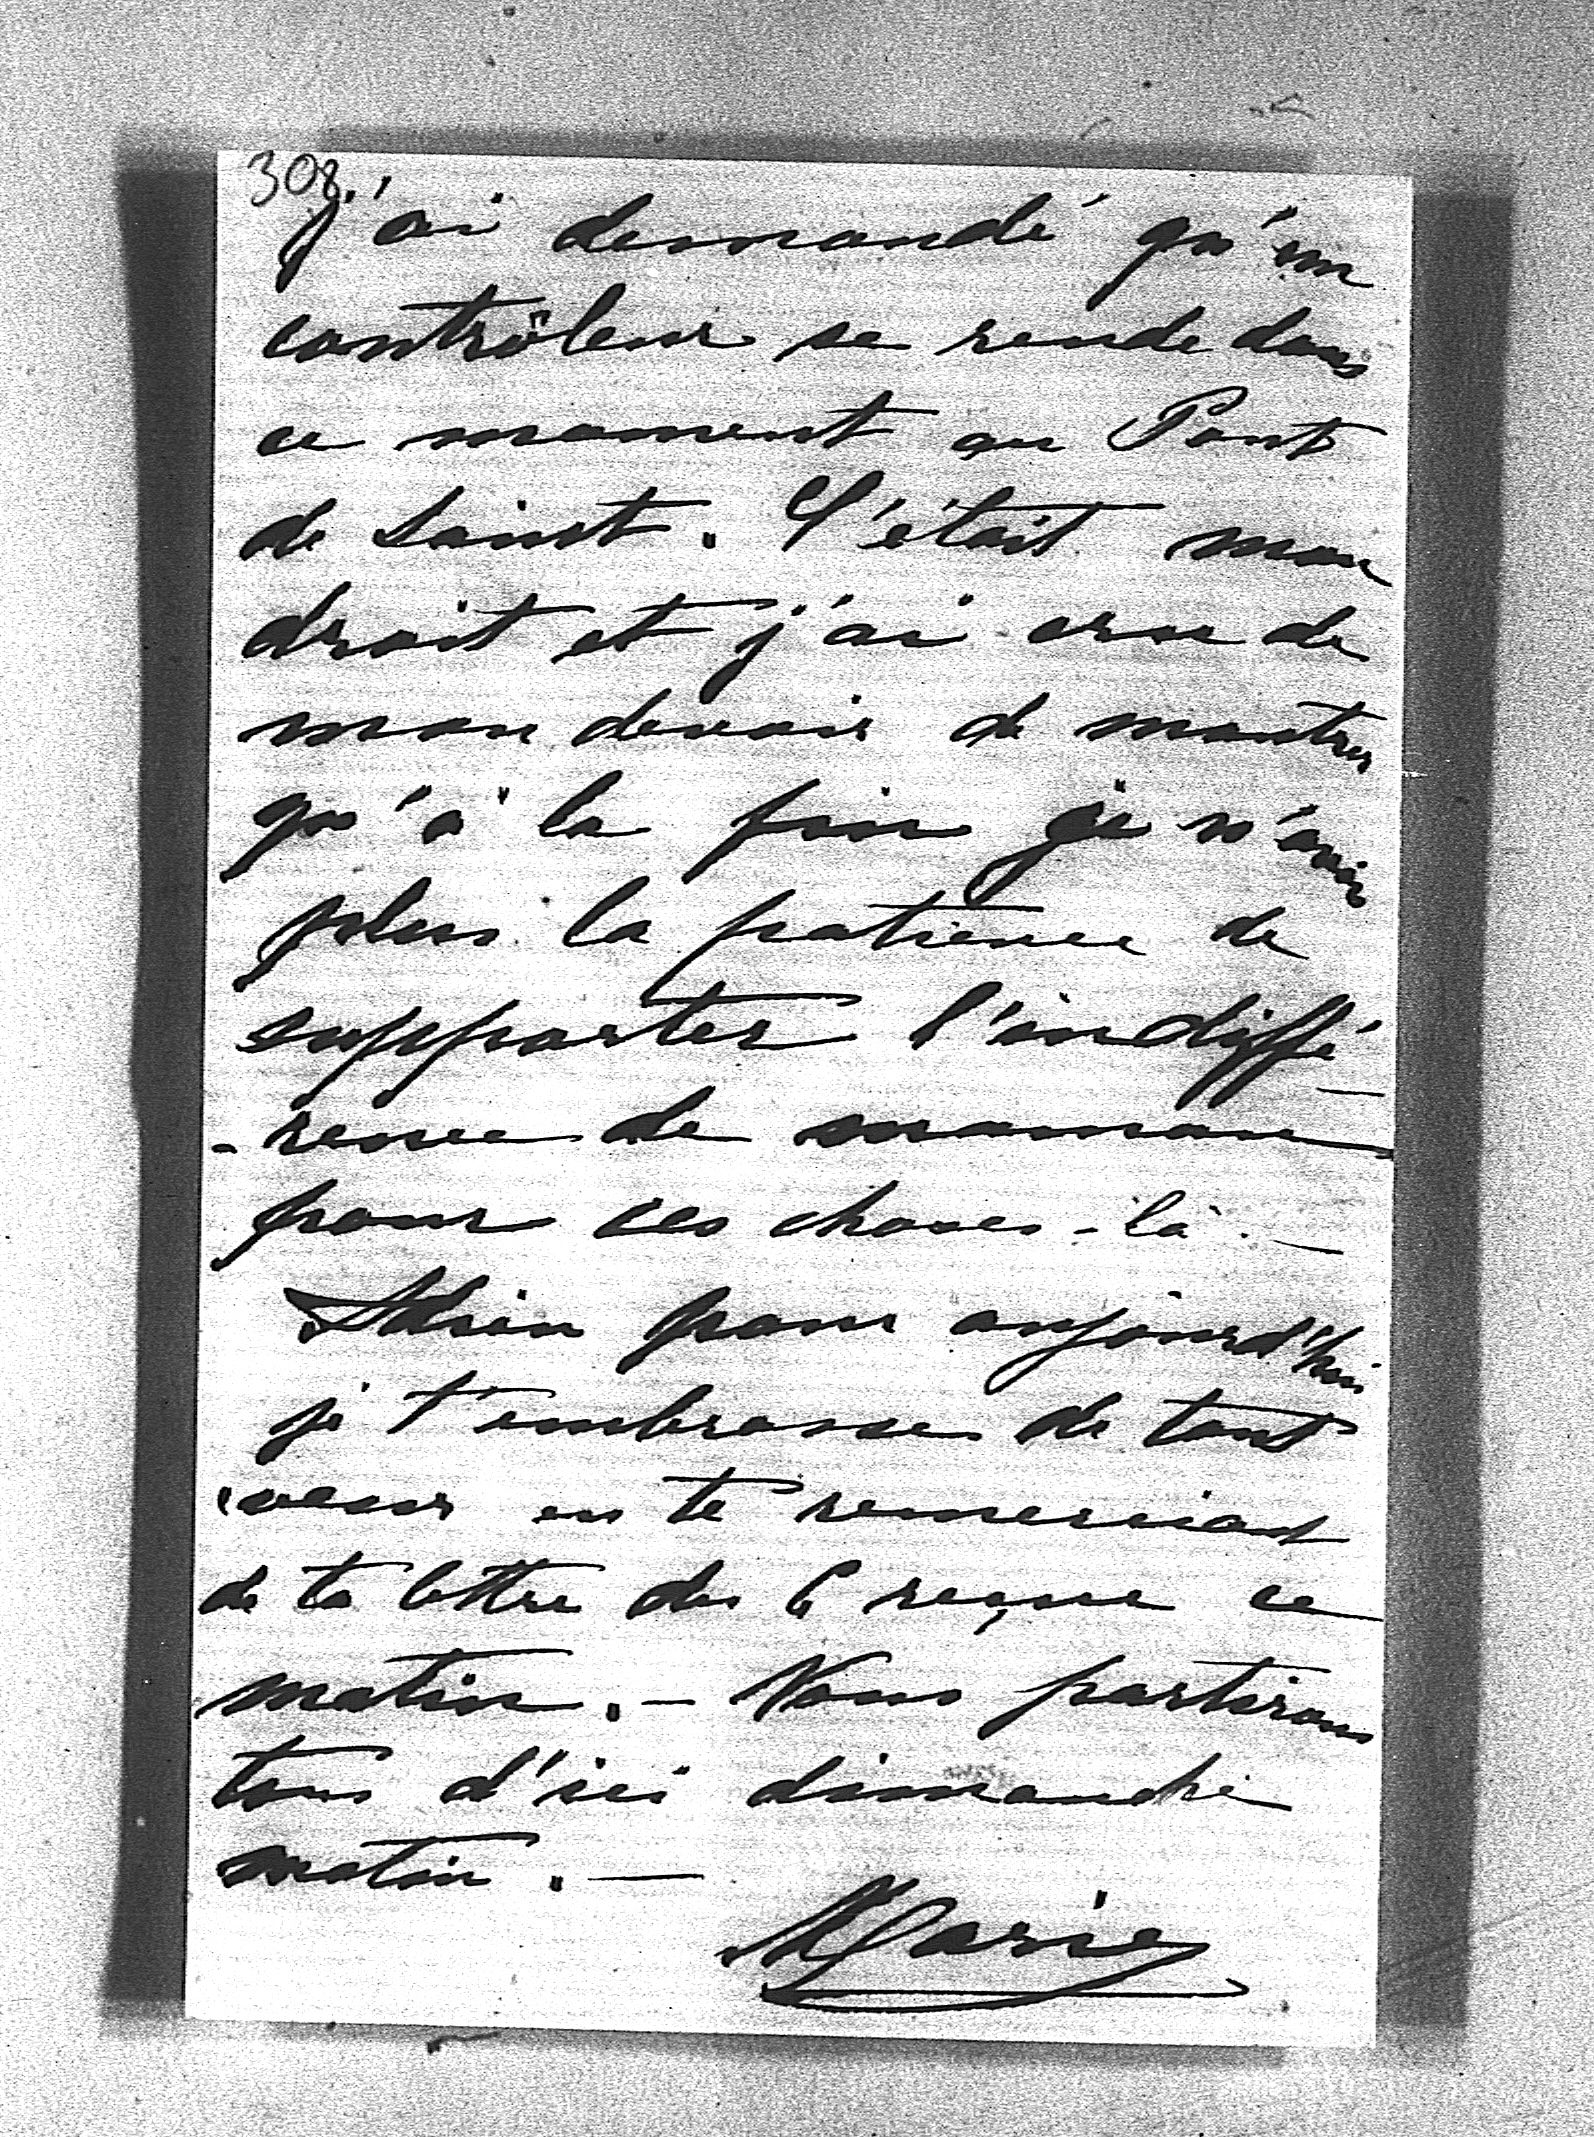 308.
j'ai demandé qu'un
contrôleur se rende dans
ce moment au Pont
de Saint. C'était mon
droit et j'ai cru de
mon devoir de montrer
qu'à la fin je n'avais
plus la patience de
supporter l'indiffé-
-rence de maman
pour ces choses-là. —
Adieu pour aujourd'hui
je t'embrasse de tout
coeur en te remerciant
de ta lettre du 6 reçue ce
matin. — Nous partirons
tous d'ici dimanche
matin. —
Marie